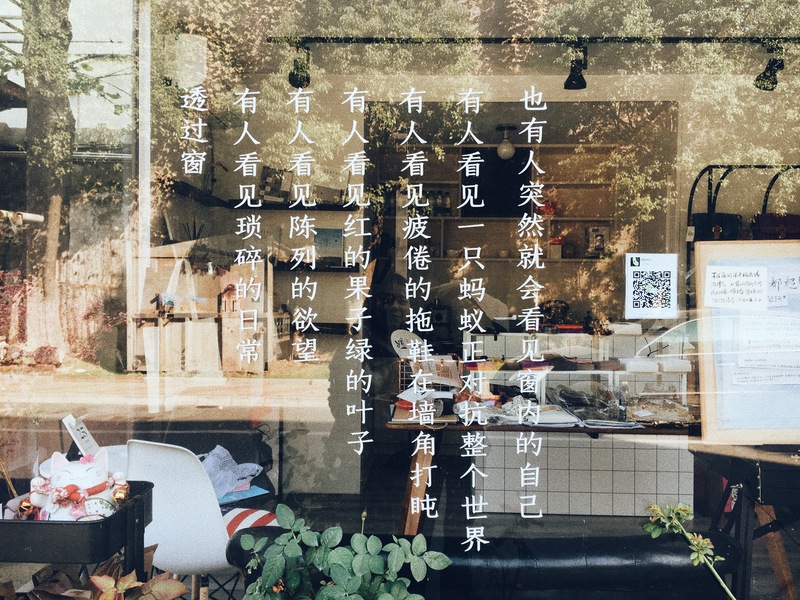 透过窗
有人看见琐碎的日常
有人看见陈列的欲望
有人看见红的果子绿的叶子
有人看见疲倦的拖鞋在墙角打盹
有人看见一只蚂蚁正对抗整个世界
也有人突然就会看见窗内的自己